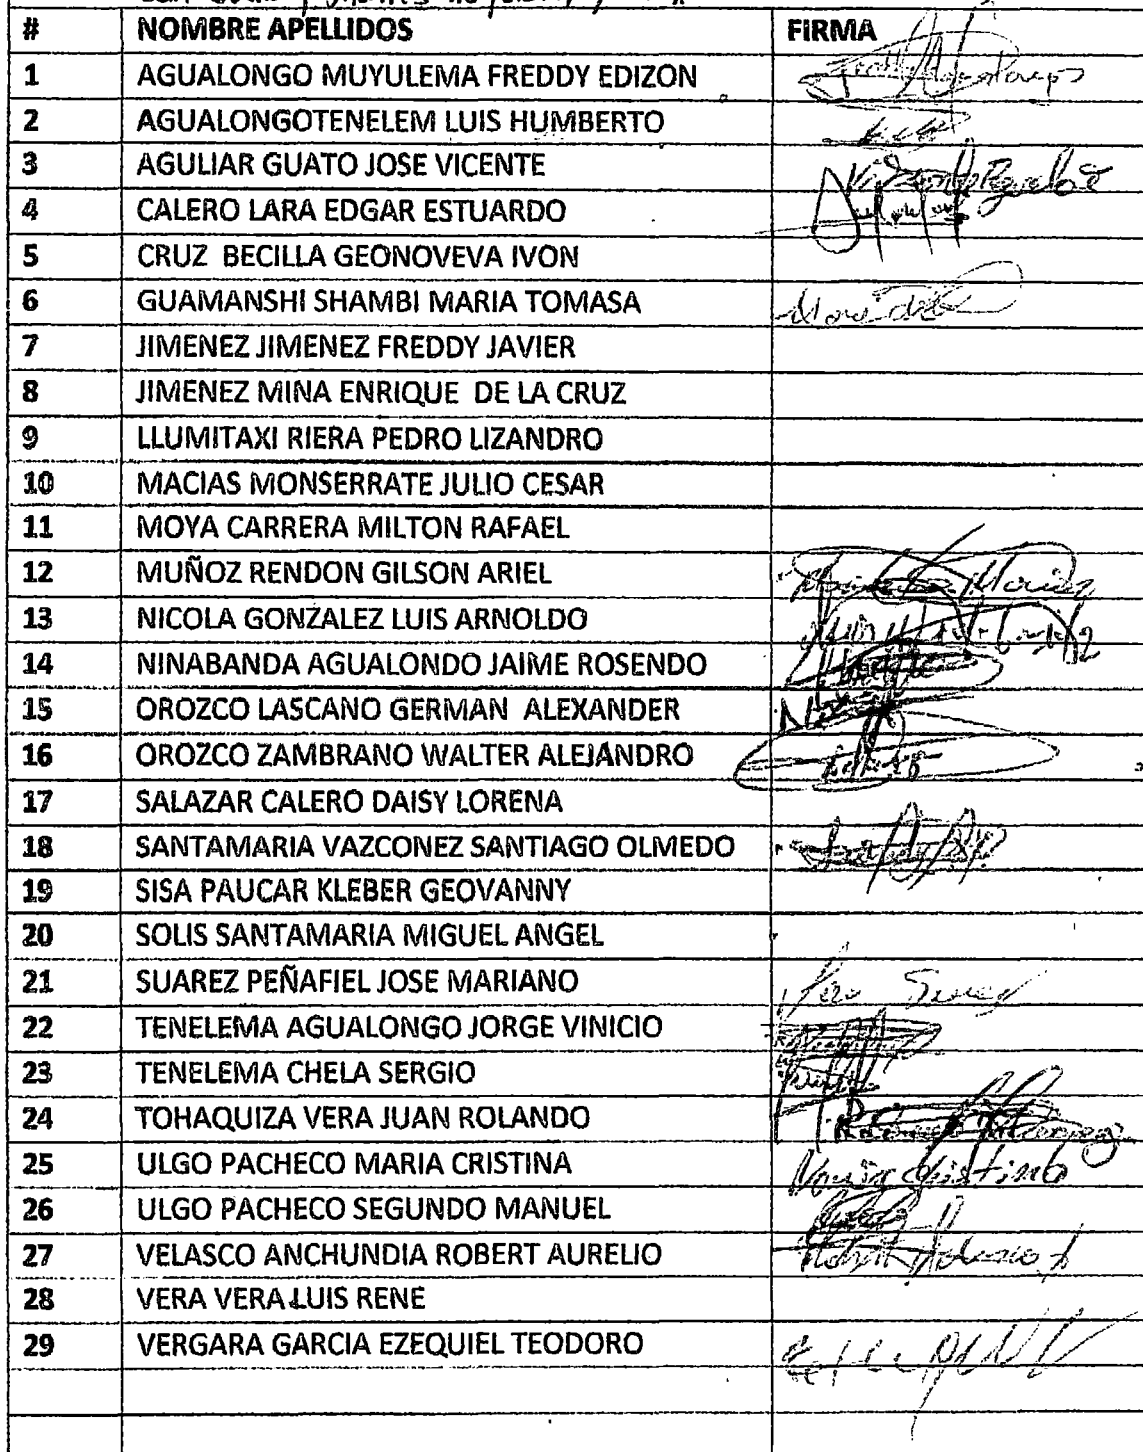 # NOMBRE APELLIDOS FIRMA
1 AGUALONGO MUYULEMA FREDDY EDIZON
2 AGUALONGOTENELEM LUIS HUMBERTO
3 AGULIAR GUATO JOSE VICENTE
4 CALERO LARA EDGAR ESTUARDO
5 CRUZ BECILLA GEONOVEVA IVON
6 GUAMANSHI SHAMBI MARIA TOMASA
7 JIMENEZ JIMENEZ FREDDY JAVIER
8 JIMENEZ MINA ENRIQUE DE LA CRUZ
9 LLUMITAXI RIERA PEDRO LIZANDRO
10 MACIAS MONSERRATE JULIO CESAR
11 MOYA CARRERA MILTON RAFAEL
12 MUÑOZ RENDON GILSON ARIEL
13 NICOLA GONZALEZ LUIS ARNOLDO
14 NINABANDA AGUALONDO JAIME ROSENDO
15 OROZCO LASCANO GERMAN ALEXANDER
16 OROZCO ZAMBRANO WALTER ALEJANDRO
17 SALAZAR CALERO DAISY LORENA
18 SANTAMARIA VAZCONEZ SANTIAGO OLMEDO
19 SISA PAUCAR KLEBER GEOVANNY
20 SOLIS SANTAMARIA MIGUEL ANGEL
21 SUAREZ PEÑAFIEL JOSE MARIANO
22 TENELEMA AGUALONGO JORGE VINICIO
23 TENELEMA CHELA SERGIO
24 TOHAQUIZA VERA JUAN ROLANDO
25 ULGO PACHECO MARIA CRISTINA
26 ULGO PACHECO SEGUNDO MANUEL
27 VELASCO ANCHUNDIA ROBERT AURELIO
28 VERA VERA LUIS RENE
29 VERGARA GARCIA EZEQUIEL TEODORO